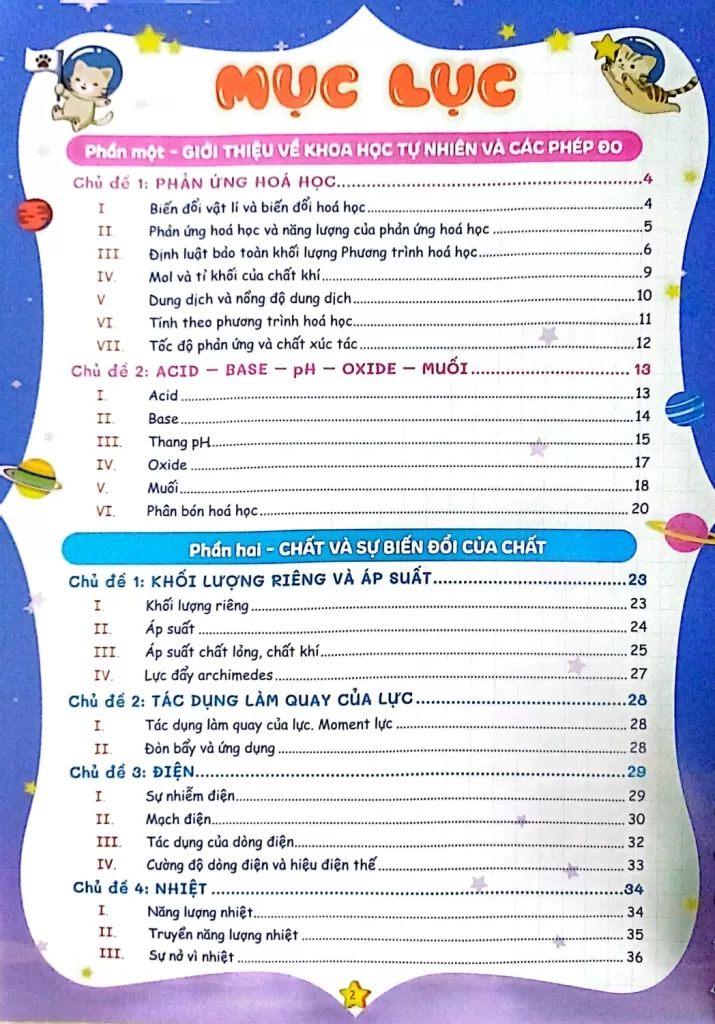 MỤC LỤC
Phần một - GIỚI THIỆU VỀ KHOA HỌC TỰ NHIÊN VÀ CÁC PHÉP ĐO
Chủ đề 1: PHẢN ỨNG HOÁ HỌC....................4
I Biến đổi vật lí và biến đổi hoá học....................4
II. Phản ứng hoá học và năng lượng của phản ứng hoá học....................5
III. Định luật bảo toàn khối lượng Phương trình hoá học....................6
IV. Mol và tỉ khối của chất khí....................9
V Dung dịch và nồng độ dung dịch....................10
VI. Tính theo phương trình hoá học....................11
VII. Tốc độ phản ứng và chất xúc tác....................12
Chủ đề 2: ACID – BASE – pH – OXIDE – MUỐI....................13
I. Acid....................13
II. Base....................14
III. Thang pH....................15
IV. Oxide....................17
V. Muối....................18
VI. Phân bón hoá học....................20
Phần hai - CHẤT VÀ SỰ BIẾN ĐỔI CỦA CHẤT
Chủ đề 1: KHỐI LƯỢNG RIÊNG VÀ ÁP SUẤT....................23
I. Khối lượng riêng....................23
II. Áp suất....................24
III. Áp suất chất lỏng, chất khí....................25
IV. Lực đẩy archimedes....................27
Chủ đề 2: TÁC DỤNG LÀM QUAY CỦA LỰC....................28
I. Tác dụng làm quay của lực. Moment lực....................28
II. Đòn bẩy và ứng dụng....................28
Chủ đề 3: ĐIỆN....................29
I. Sự nhiễm điện....................29
II. Mạch điện....................30
III. Tác dụng của dòng điện....................32
IV. Cường độ dòng điện và hiệu điện thế....................33
Chủ đề 4: NHIỆT....................34
I. Năng lượng nhiệt....................34
II. Truyền năng lượng nhiệt....................35
III. Sự nở vì nhiệt....................36
2